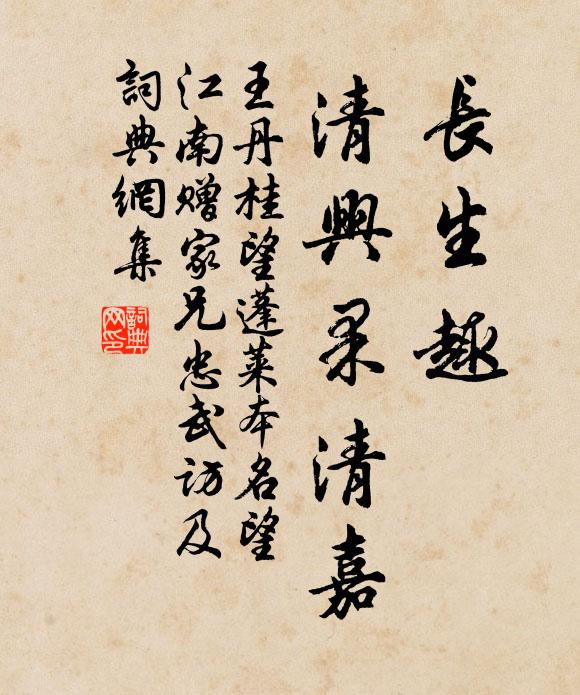 長生趣
清興果清嘉
王丹桂望蓬萊本名望
江南贈家兄忠武訪及
詞典網集
詞典
网印